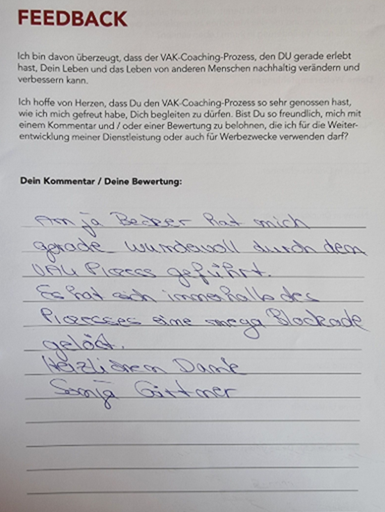 FEEDBACK
Ich bin davon überzeugt, dass der VAK-Coaching-Prozess, den DU gerade erlebt
hast, Dein Leben und das Leben von anderen Menschen nachhaltig verändern und
verbessern kann.
Ich hoffe von Herzen, dass Du den VAK-Coaching-Prozess so sehr genossen hast,
wie ich mich gefreut habe, Dich begleiten zu dürfen. Bist Du so freundlich, mich mit
einem Kommentar und / oder einer Bewertung zu belohnen, die ich für die Weiter-
entwicklung meiner Dienstleistung oder auch für Werbezwecke verwenden darf?
Dein Kommentar / Deine Bewertung:
Anja Becker hat mich
gerade wundevoll durch den
VAK Prozess geführt.
Es hat sich innerhalb des
Prozesses eine mega Blockade
gelöst.
Herzlichen Dank
Sonja Gärtner